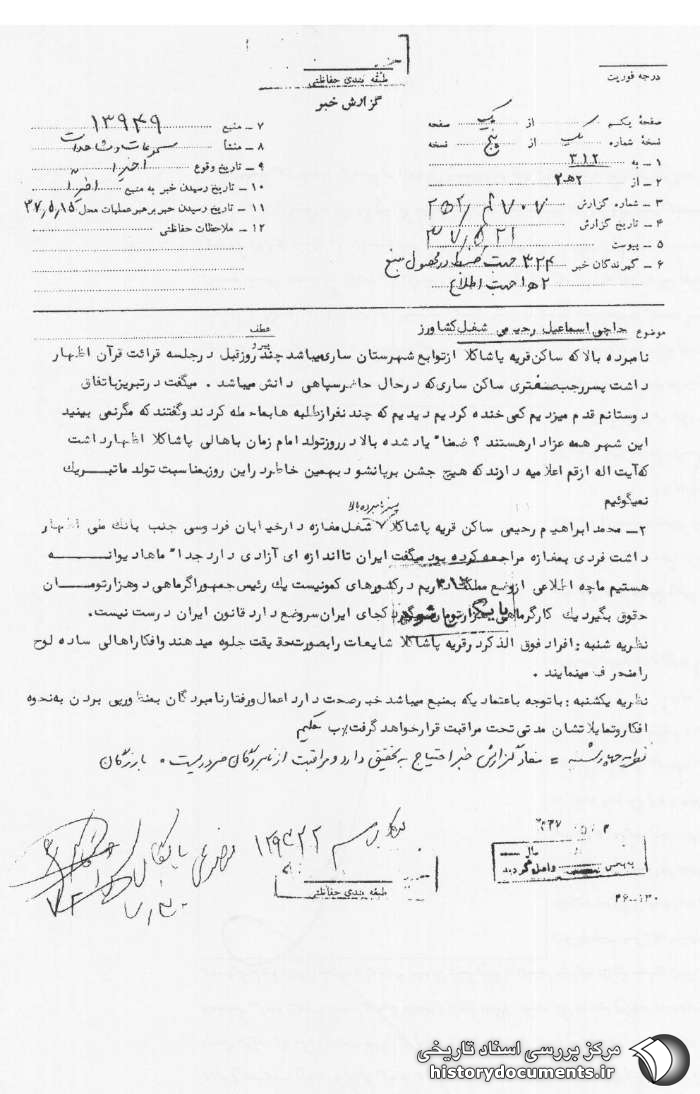 طبقه بندی حفاظتی
درجه فوریت
گزارش خبر
صفحهٔ یکم از یک صفحه
نسخهٔ شماره یک از پنج نسخه
۱ ــ به ۳۱۲
۲ ــ از ۲هـ۲
۳ ــ شماره گزارش
۴ ــ تاریخ گزارش ۳۷/۵/۲۱
۵ ــ پیوست
۶ ــ گیرندگان خبر ۳۲۴ جهت ضبط در محصول منبع
۲ها جهت اطلاع
۷ ــ منبع ۱۳۹۴۹
۸ ــ منشأ مسموعات و مشاهدات
۹ ــ تاریخ وقوع اخیراً
۱۰ ــ تاریخ رسیدن خبر به منبع اخیراً
۱۱ ــ تاریخ رسیدن خبر برهبر عملیات محل ۳۷/۵/۱۵
۱۲ ــ ملاحظات حفاظتی
موضوع حاجی اسماعیل رحیمی شغل کشاورز
عطف
پیرو
نامبرده بالا که ساکن قریه پاشاکلا از توابع شهرستان ساری میباشد چند روز قبل در جلسه قرائت قرآن اظهار
داشت پسر رجب صفتری ساکن ساری که در حال حاضر سپاهی دانش میباشد . میگفت در تبریز باتفاق
دوستانم قدم میزدیم کمی خنده کردیم دیدیم که چند نفر از طلبه ها بما حمله کردند و گفتند که مگر نمی بینید
این شهر همه عزادار هستند ؟ ضمناً یاد شده بالا در روز تولد امام زمان باهالی پاشاکلا اظهار داشت
که آیت اله از قم اعلامیه دادند که هیچ جشن برپا نشود بهمین خاطر در این روز بمناسبت تولد ما تبریک
نمیگوئیم
پسر نامبرده بالا
۲ــ محمد ابراهیم رحیمی ساکن قریه پاشاکلا شغل مغازه دار خیابان فردوسی جنب بانک ملی اظهار
داشت فردی بمغازه مراجعه کرده بود میگفت ایران تا اندازه ای آزادی دارد جداً ماها دیوانه
هستیم ما چه اطلاعی از وضع مملکت داریم در کشورهای کمونیست یک رئیس جمهور اگر ماهی دو هزار تومان
حقوق بگیرد یک کارگر ماهی هزار تومان میگیرد کجای ایران سر و وضع دارد قانون ایران درست نیست.
۳۱۲
بایگانی شود
نظریه شنبه : افراد فوق الذکر در قریه پاشاکلا شایعات را بصورت حقیقت جلوه میدهند و افکار اهالی ساده لوح
را منحرف مینمایند .
نظریه یکشنبه : با توجه باعتمادیکه بمنبع میباشد خبر صحت دارد اعمال و رفتار نامبردگان بمنظور پی بردن به نحوه
افکار و تمایلاتشان مدتی تحت مراقبت قرار خواهد گرفت. حکیم
نظریه چهارشنبه = مفاد گزارش خبر احتیاج به تحقیق دارد و مراقبت از نامبردگان ضروریست . بازرگان
۱۲۹۴۲۲
بایگانی
طبقه بندی حفاظتی
واصل گردید
۲۶-۱۳۰
مرکز بررسی اسناد تاریخی
historydocuments.ir